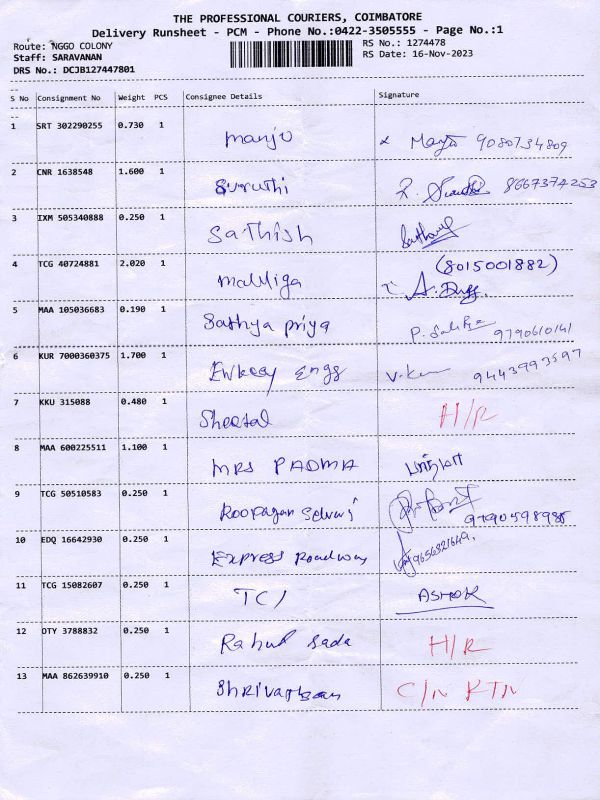 THE PROFESSIONAL COURIERS, COIMBATORE
Delivery Runsheet - PCM - Phone No.:0422-3505555 - Page No.:1
Route: NGGO COLONY
RS No.: 1274478
Staff: SARAVANAN
RS Date: 16-Nov-2023
DRS No.: DCJB127447801
S No Consignment No Weight PCS Consignee Details Signature
1 SRT 302290255 0.730 1 Manju 9080734809
2 CNR 1638548 1.600 1 Suruthi 8667374253
3 IXM 505340888 0.250 1 Sathish
4 TCG 40724881 2.020 1 Malliga (8015001882)
5 MAA 105036683 0.190 1 Sathya priya 9790610141
6 KUR 7000360375 1.700 1 Engg 9443993597
7 KKU 315088 0.480 1 Sheetal H/R
8 MAA 600225511 1.100 1 MRS PADMA
9 TCG 50510583 0.250 1 Selvaj
10 EDQ 16642930 0.250 1 Express Roadway 9656321649
11 TCG 15082607 0.250 1 TCI ASHOK
12 OTY 3788832 0.250 1 Rahul sada H/R
13 MAA 862639910 0.250 1 C/N RTN